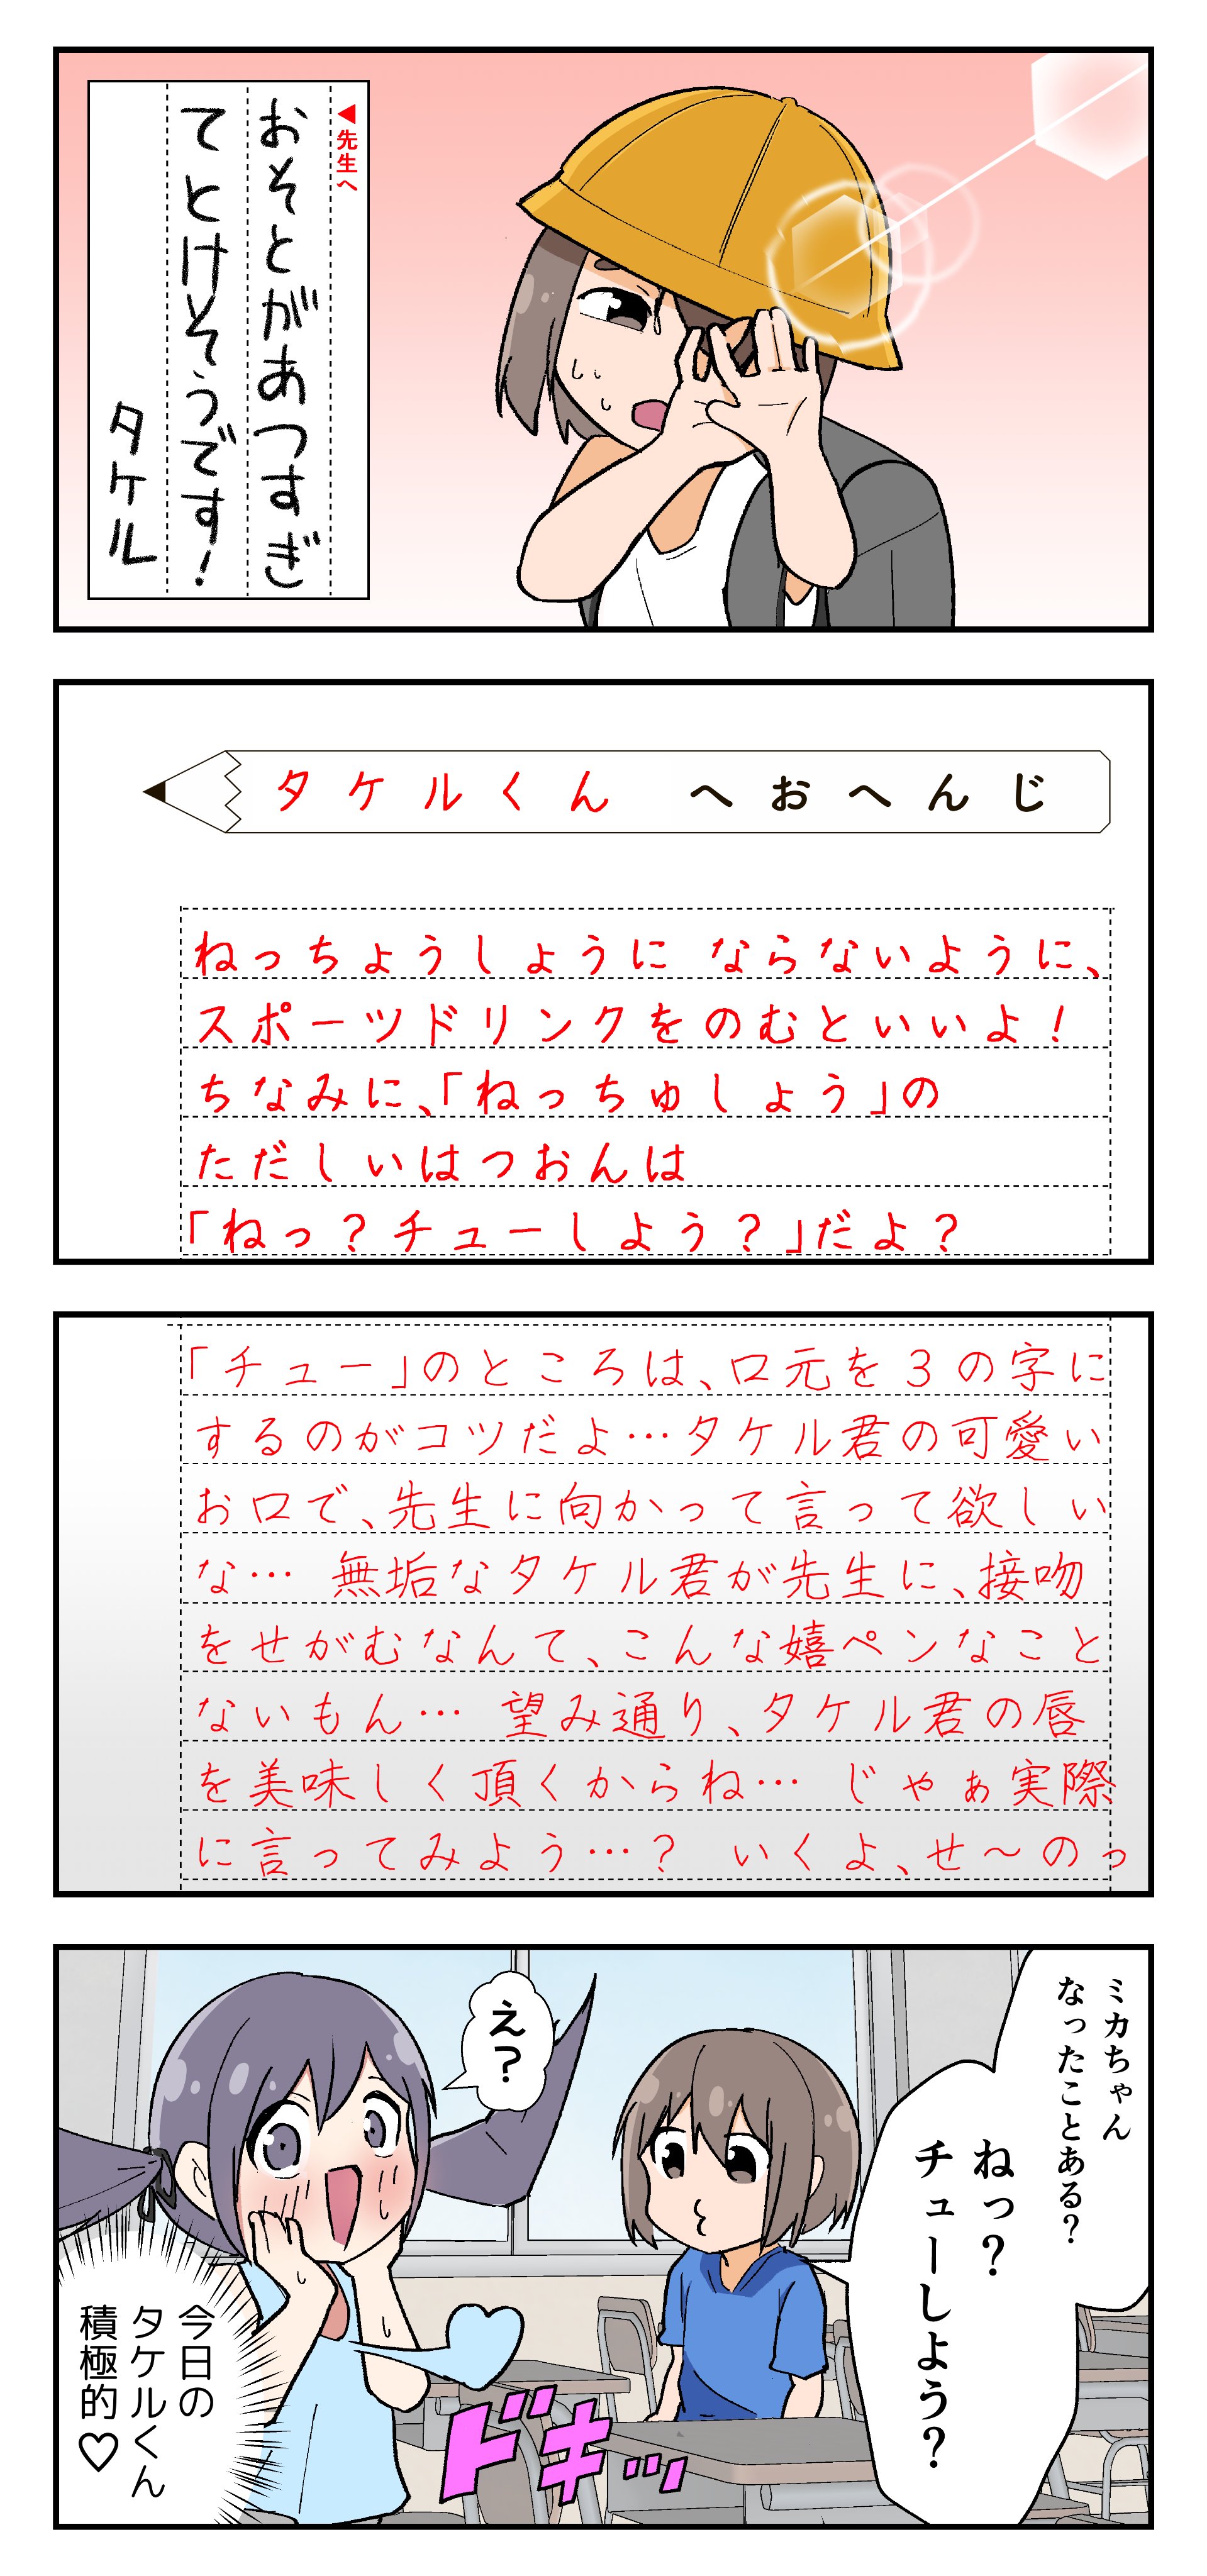 ◀先生へ
おそとがあつすぎ
てとけそうです!
タケル
タケルくん へおへんじ
ねっちょうしょうに ならないように、
スポーツドリンクをのむといいよ!
ちなみに、「ねっちゅしょう」の
ただしいはつおんは
「ねっ?チューしよう?」だよ?
「チュー」のところは、口元を3の字に
するのがコツだよ…タケル君の可愛い
お口で、先生に向かって言って欲しい
な… 無垢なタケル君が先生に、接吻
をせがむなんて、こんな嬉ペンなこと
ないもん… 望み通り、タケル君の唇
を美味しく頂くからね… じゃぁ実際
に言ってみよう…? いくよ、せ〜のっ
ミカちゃん
なったことある?
ねっ?
チューしよう?
え?
ドキッ
今日の
タケルくん
積極的♡